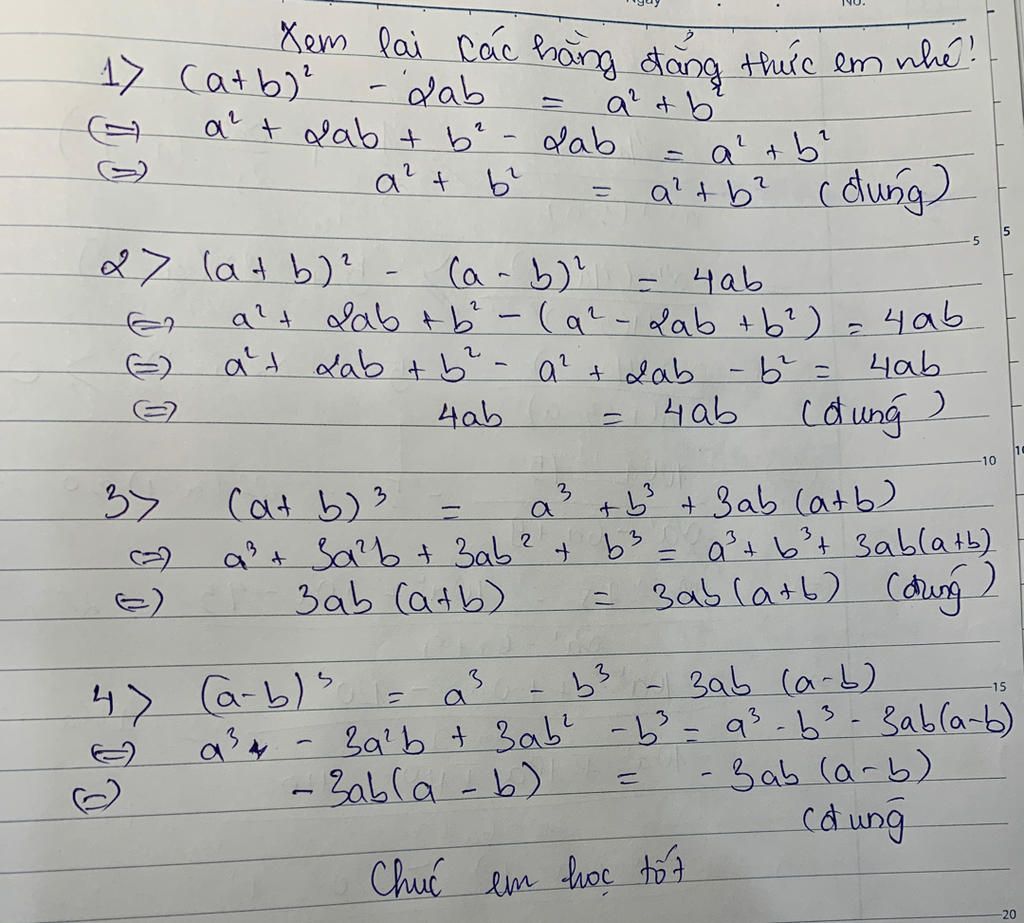 Xem lại các hằng đẳng thức em nhé!
1> (a+b)² - 2ab = a² + b²
<=> a² + 2ab + b² - 2ab = a² + b²
<=> a² + b² = a² + b² (đúng)
5
5
2> (a + b)² - (a - b)² = 4ab
<=> a² + 2ab + b² - (a² - 2ab + b²) = 4ab
<=> a² + 2ab + b² - a² + 2ab - b² = 4ab
<=> 4ab = 4ab (đúng)
10
3> (a + b)³ = a³ + b³ + 3ab (a+b)
<=> a³ + 3a²b + 3ab² + b³ = a³ + b³ + 3ab(a+b)
<=> 3ab (a+b) = 3ab (a+b) (đúng)
4> (a-b)³ = a³ - b³ - 3ab (a-b)
15
<=> a³ - 3a²b + 3ab² - b³ = a³ - b³ - 3ab(a-b)
<=> - 3ab(a - b) = - 3ab (a - b)
(đúng
Chúc em học tốt
20